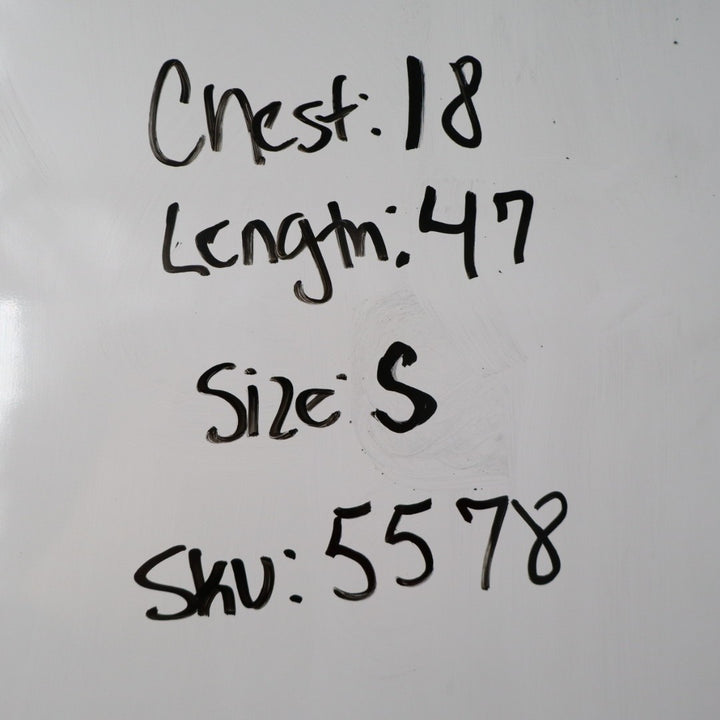 Chest: 18
Length: 47
Size: S
Sku: 5578